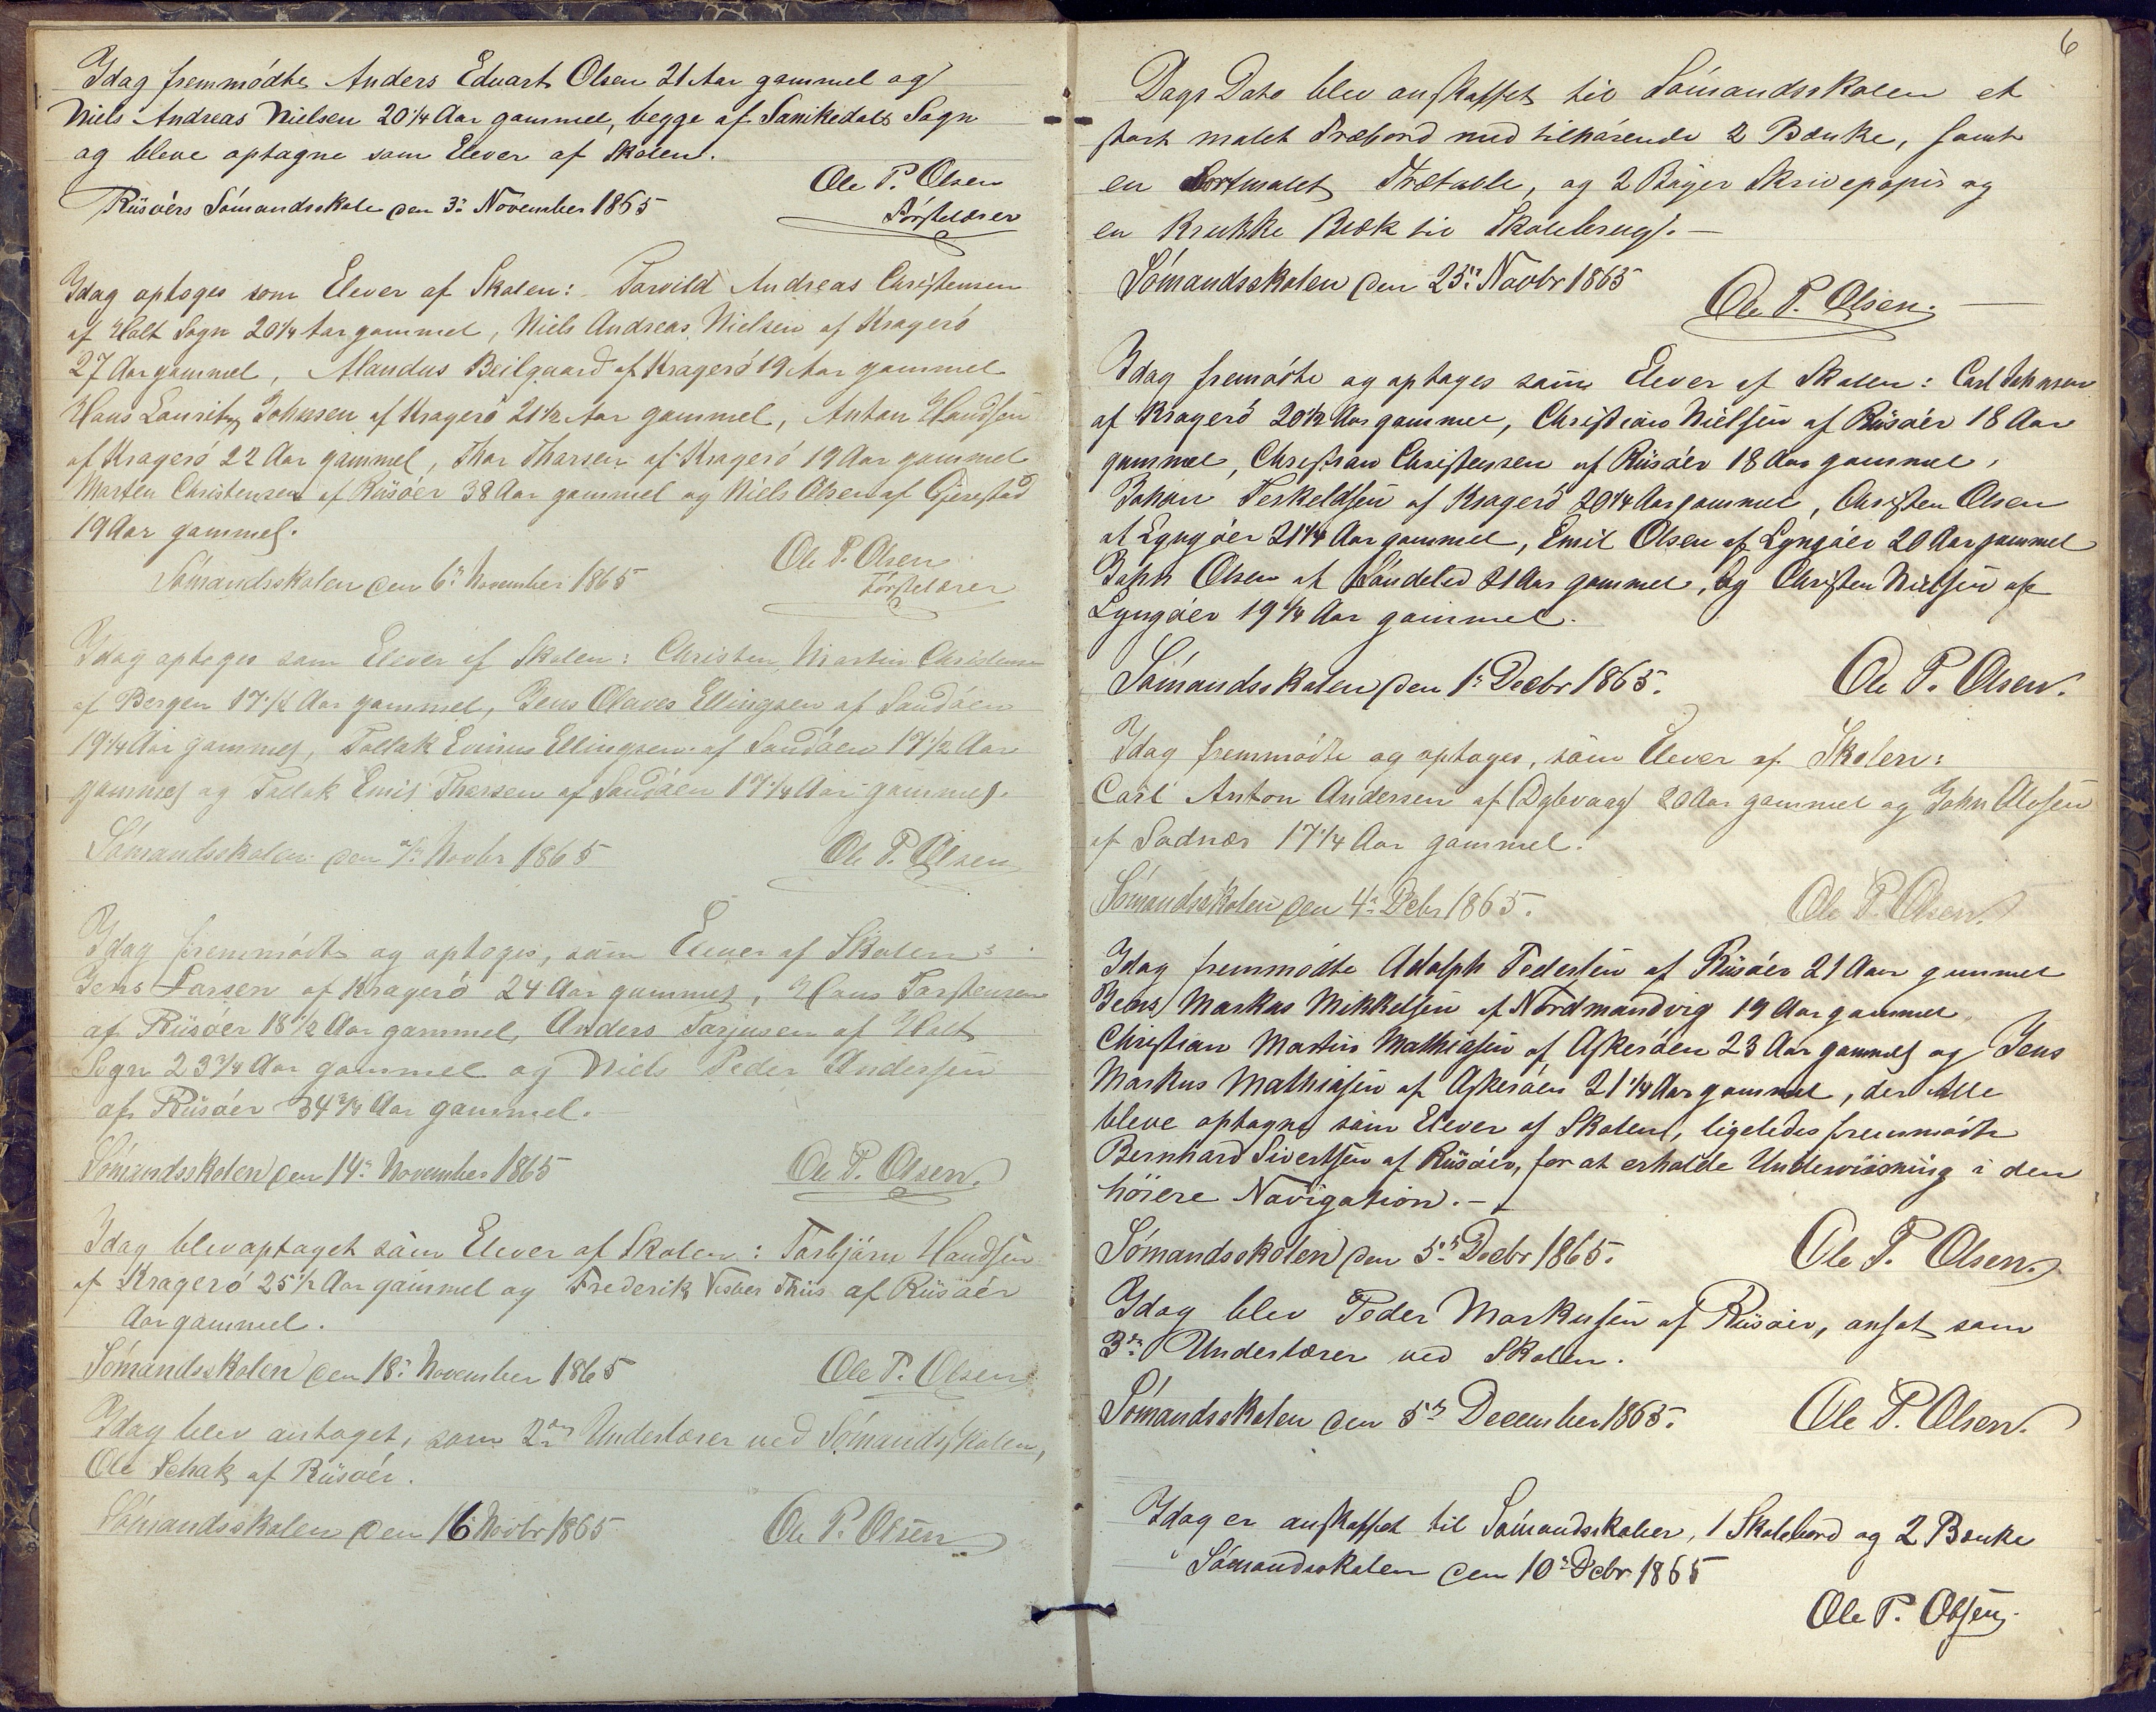 Idag fremmødte Anders Eduart Olsen 21 Aar gammel og
Niels Andreas Nielsen 20 1/4 Aar gammel, begge af Sanikedals Sogn
og bleve optagne som Elever af Skolen.
Ole P. Olsen
Riisøers Sømandsskole den 3' November 1865
Førstelærer
Idag optoges som Elever af Skolen: Torvild Andreas Christensen
af Holt Sogn 20 1/4 Aar gammel, Niels Andreas Nielsen af Kragerø
27 Aar gammel, Alandus Beilgaard af Kragerø 19 Aar gammel
Hans Lauritz Johnsen af Kragerø 21 1/2 Aar gammel, Anton Handsen
af Kragerø 22 Aar gammel, Thor Thorsen af Kragerø 19 Aar gammel
Morten Christensen af Riisøer 38 Aar gammel og Niels Olsen af Gjerestad
19 Aar gammel.
Ole P. Olsen
Sømandsskolen den 6' November 1865
Førstelærer
Idag optoges som Elever af Skolen: Christen Martin Christensen
af Bergen 17 1/2 Aar gammel, Jens Olaves Ellingsen af Sandøen
19 1/4 Aar gammel, Tallak Evinus Ellingsen af Sandøen 17 1/2 Aar
gammel og Tallak Emil Thorsen af Sandøen 17 1/4 Aar gammel.
Sømandsskolen den 7' Novbr 1865 Ole P. Olsen
Idag fremmødte og optoges, som Elever af Skolen:
Jens Larsen af Kragerø 24 Aar gammel, Hans Torstensen
af Riisøer 18 1/2 Aar gammel, Anders Torjusen af Holt
Sogn 23 3/4 Aar gammel og Niels Peder Andersen
af Riisøer 34 3/4 Aar gammel.
Sømandsskolen den 14' November 1865 Ole P. Olsen.
Idag blev optaget som Elever af Skolen: Torbjørn Handsen
af Kragerø 25 1/2 Aar gammel og Frederik Vesber Thiis af Riisøer
Aar gammel.
Sømandsskolen den 18' November 1865 Ole P. Olsen
Idag blev antaget, som 2den Underlærer ved Sømandsskolen,
Ole Schak af Riisøer.
Sømandsskolen den 16 Novbr 1865 Ole P. Olsen
6
Dags Dato blev anskaffet til Sømandsskolen et
stort malet Træbord med tilhørende 2 Bænke, samt
en sortmalet Trætavle, og 2 Bøger Skrivepapir og
en Krukke Blæk til Skolebrug. —
Sømandsskolen den 25' Novbr 1865
Ole P. Olsen.
Idag fremødte og optoges som Elever af Skolen: Carl Johnsen
af Kragerø 20 1/2 Aar gammel, Christian Nielsen af Riisøer 18 Aar
gammel, Christian Christensen af Riisøer 18 Aar gammel,
Johan Terkeldsen af Kragerø 20 1/4 Aar gammel, Christen Olsen
af Lyngøer 21 1/4 Aar gammel, Emil Olsen af Lyngøer 20 Aar gammel
John Olsen af Søndeled 21 Aar gammel, og Christen Nielsen af
Lyngøer 19 1/4 Aar gammel.
Sømandsskolen den 1' Decbr 1865. Ole P. Olsen.
Idag fremmødte og optoges, som Elever af Skolen:
Carl Anton Andersen af Dybvaag 20 Aar gammel og John Olsen
af Sadnæs 17 1/4 Aar gammel.
Sømandsskolen den 4' Debr 1865. Ole P. Olsen.
Idag fremmødte Adolph Pedersen af Riisøer 21 Aar gammel
Jens Markus Mikkelsen af Nordmandvig 19 Aar gammel,
Christian Martin Mathiasen af Askerøen 23 Aar gammel og Jens
Markus Mathiasen af Askerøen 21 1/4 Aar gammel, der Alle
bleve optagne som Elever af Skolen, ligeledes fremmødte
Bernhard Sivertsen af Riisøer, for at erholde Underviisning i den
høiere Navigation. —
Sømandsskolen den 5' Decbr 1865. Ole P. Olsen.
Idag blev Peder Markusen af Riisøer, ansat som
3die Underlærer ved Skolen.
Sømandsskolen den 5' December 1865. Ole P. Olsen.
Idag er anskaffet til Sømandsskolen, 1 Skolebord og 2 Bænke
Sømandsskolen den 10' Debr 1865
Ole P. Olsen.